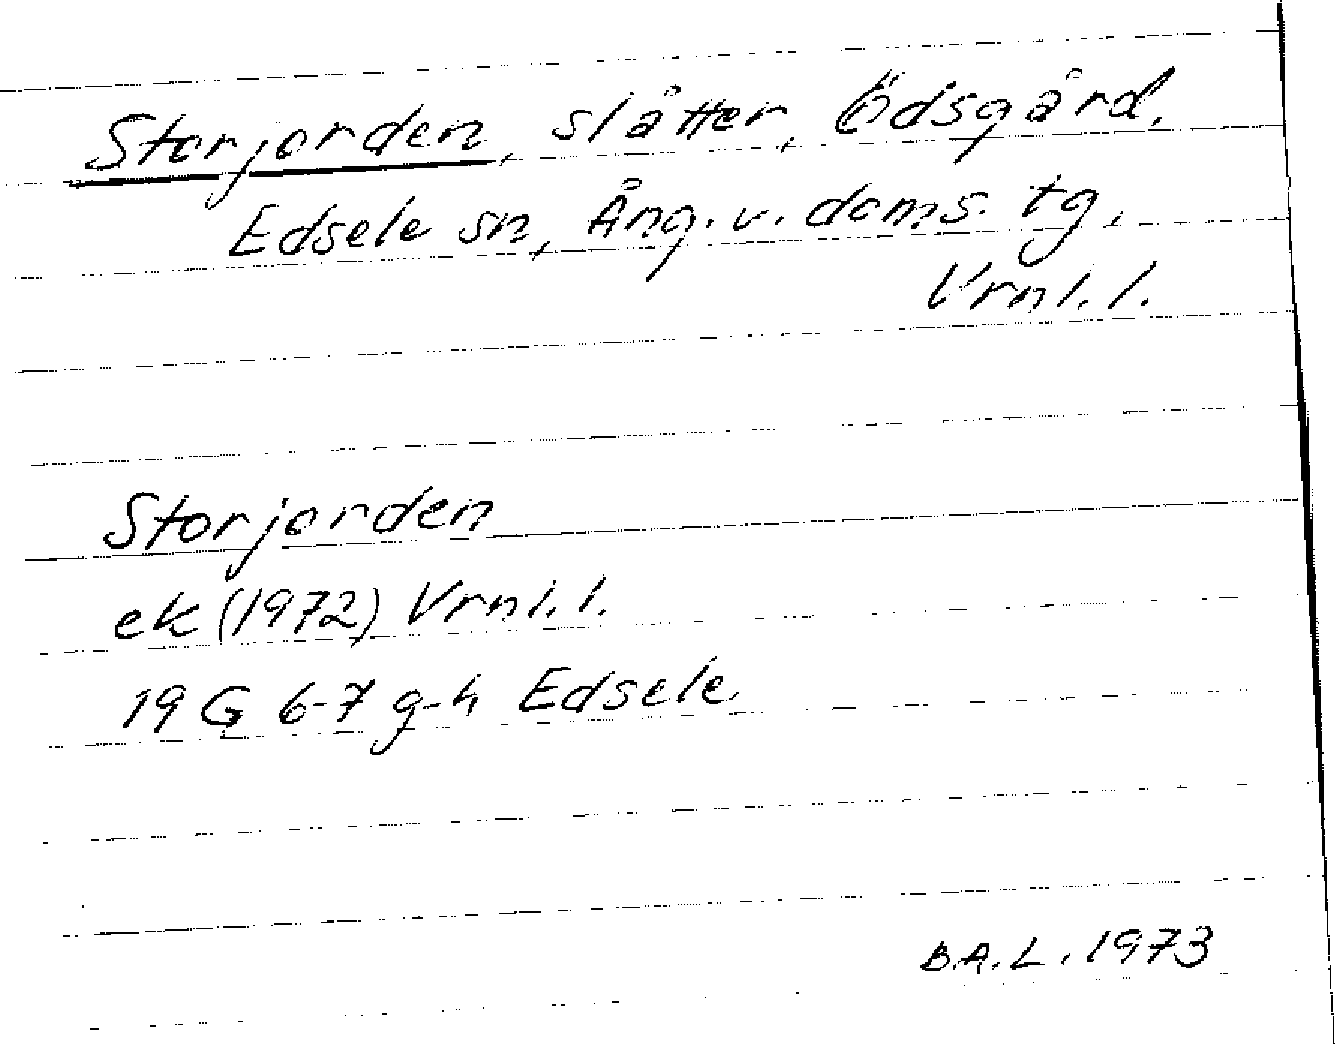 Storjorden, slåtter, Ödsgård.
Edsele sn, Ång. v. doms. tg,
Vrnl. l.
Storjorden
ek (1972) Vrnl. l.
19 G 6-7 g-h Edsele
B.A.L. 1973